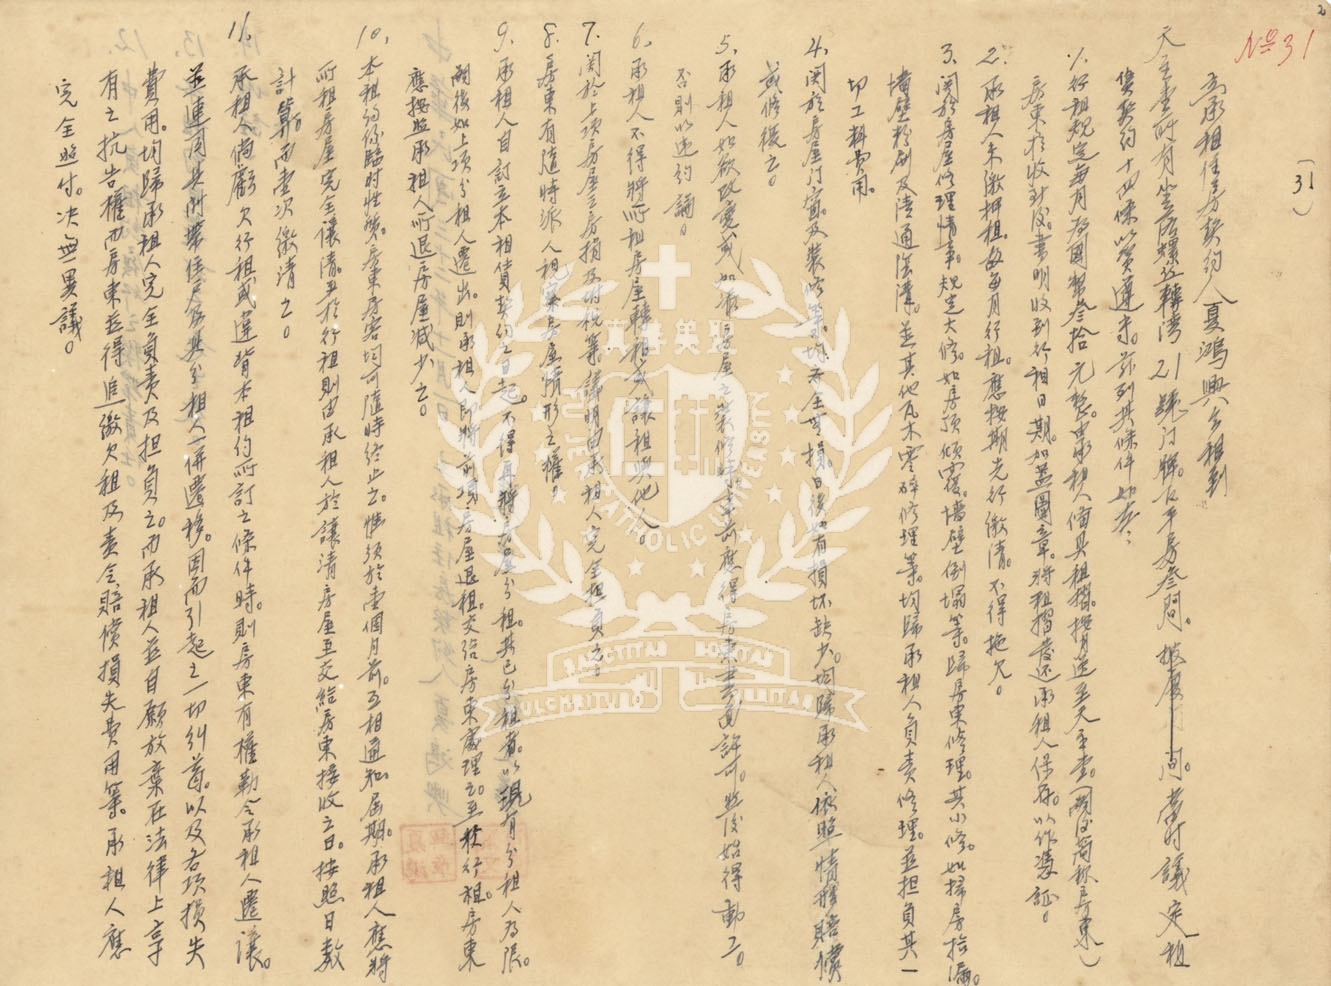 2
No 31
(31)
立承租住房契約人夏鴻興今租到
天主堂所有坐落螺丝轉灣21號门牌。瓦平房叁間。披廈 间。當时議定租
賃契約十四條以資遵守。兹列其條件如左：
1. 行租規定每月為國幣叁拾元整。由承租人備具租摺。按月送至天主堂。(以後简称房東)
房東於收訖後。書明收到行租日期。加蓋圖章。將租摺發还承租人保存。以作憑証。
2. 承租人未繳押租。每每月行租。應按期先行繳清。不得拖欠。
3. 関於房屋修理情事。規定大修。如房顶傾覆。墙壁倒塌等。歸房東修理。其小修。如掃房拾漏。
墙壁粉刷及清通陰溝。並其他瓦木零碎修理等。均歸承租人負责修理。並担負其一
切工料費用。
4. 関於房屋门窗。及装修等。均不全無損。日後如有損坏缺少。均歸承租人。依照情形賠償
或修復之。
5. 承租人如欲改變或加添房屋之装修時。事前應得房東書面許可。然後始得動工。
否則以违约論。
6. 承租人不得將所租房屋轉租或讓租與他人。
7. 関於上項房屋之房捐及附税等。議明由承租人完全担負之。
8. 房東有隨時派人視察房屋情形之權。
9. 承租人自訂立本租賃契约之日起。不得再將房屋分租。其已分租者。以現有分租人為限。
嗣後如上項分租人遷出。則承租人即將所項房屋退租。交给房東處理之。至於行租。房東
應按照承租人所退房屋減少之。
10. 本租约係臨时性质。房東房客均可隨時終止之。惟须於壹個月前。互相通知屆期。承租人應將
所租房屋完全讓清。至於行租則由承租人於讓清房屋至交給房東接收之日。按照日數
計算。而壹次繳清之。
11. 承租人倘虧欠行租或違背本租约所訂之條件時。則房東有權勒令承租人遷讓。
並連同其附帶住户及其分租人一併遷移。因而引起之一切糾葛。以及各項損失
費用。均歸承租人完全負責及担負之。而承租人並自願放棄在法律上享
有之抗告權而房東並得追繳欠租及责令賠償損失費用等。承租人應
完全照付。决無異議。